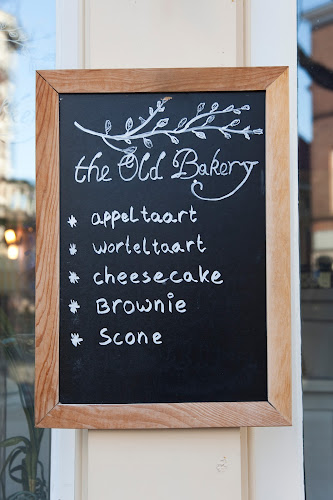 the Old Bakery
* appeltaart
* worteltaart
* cheesecake
* Brownie
* Scone